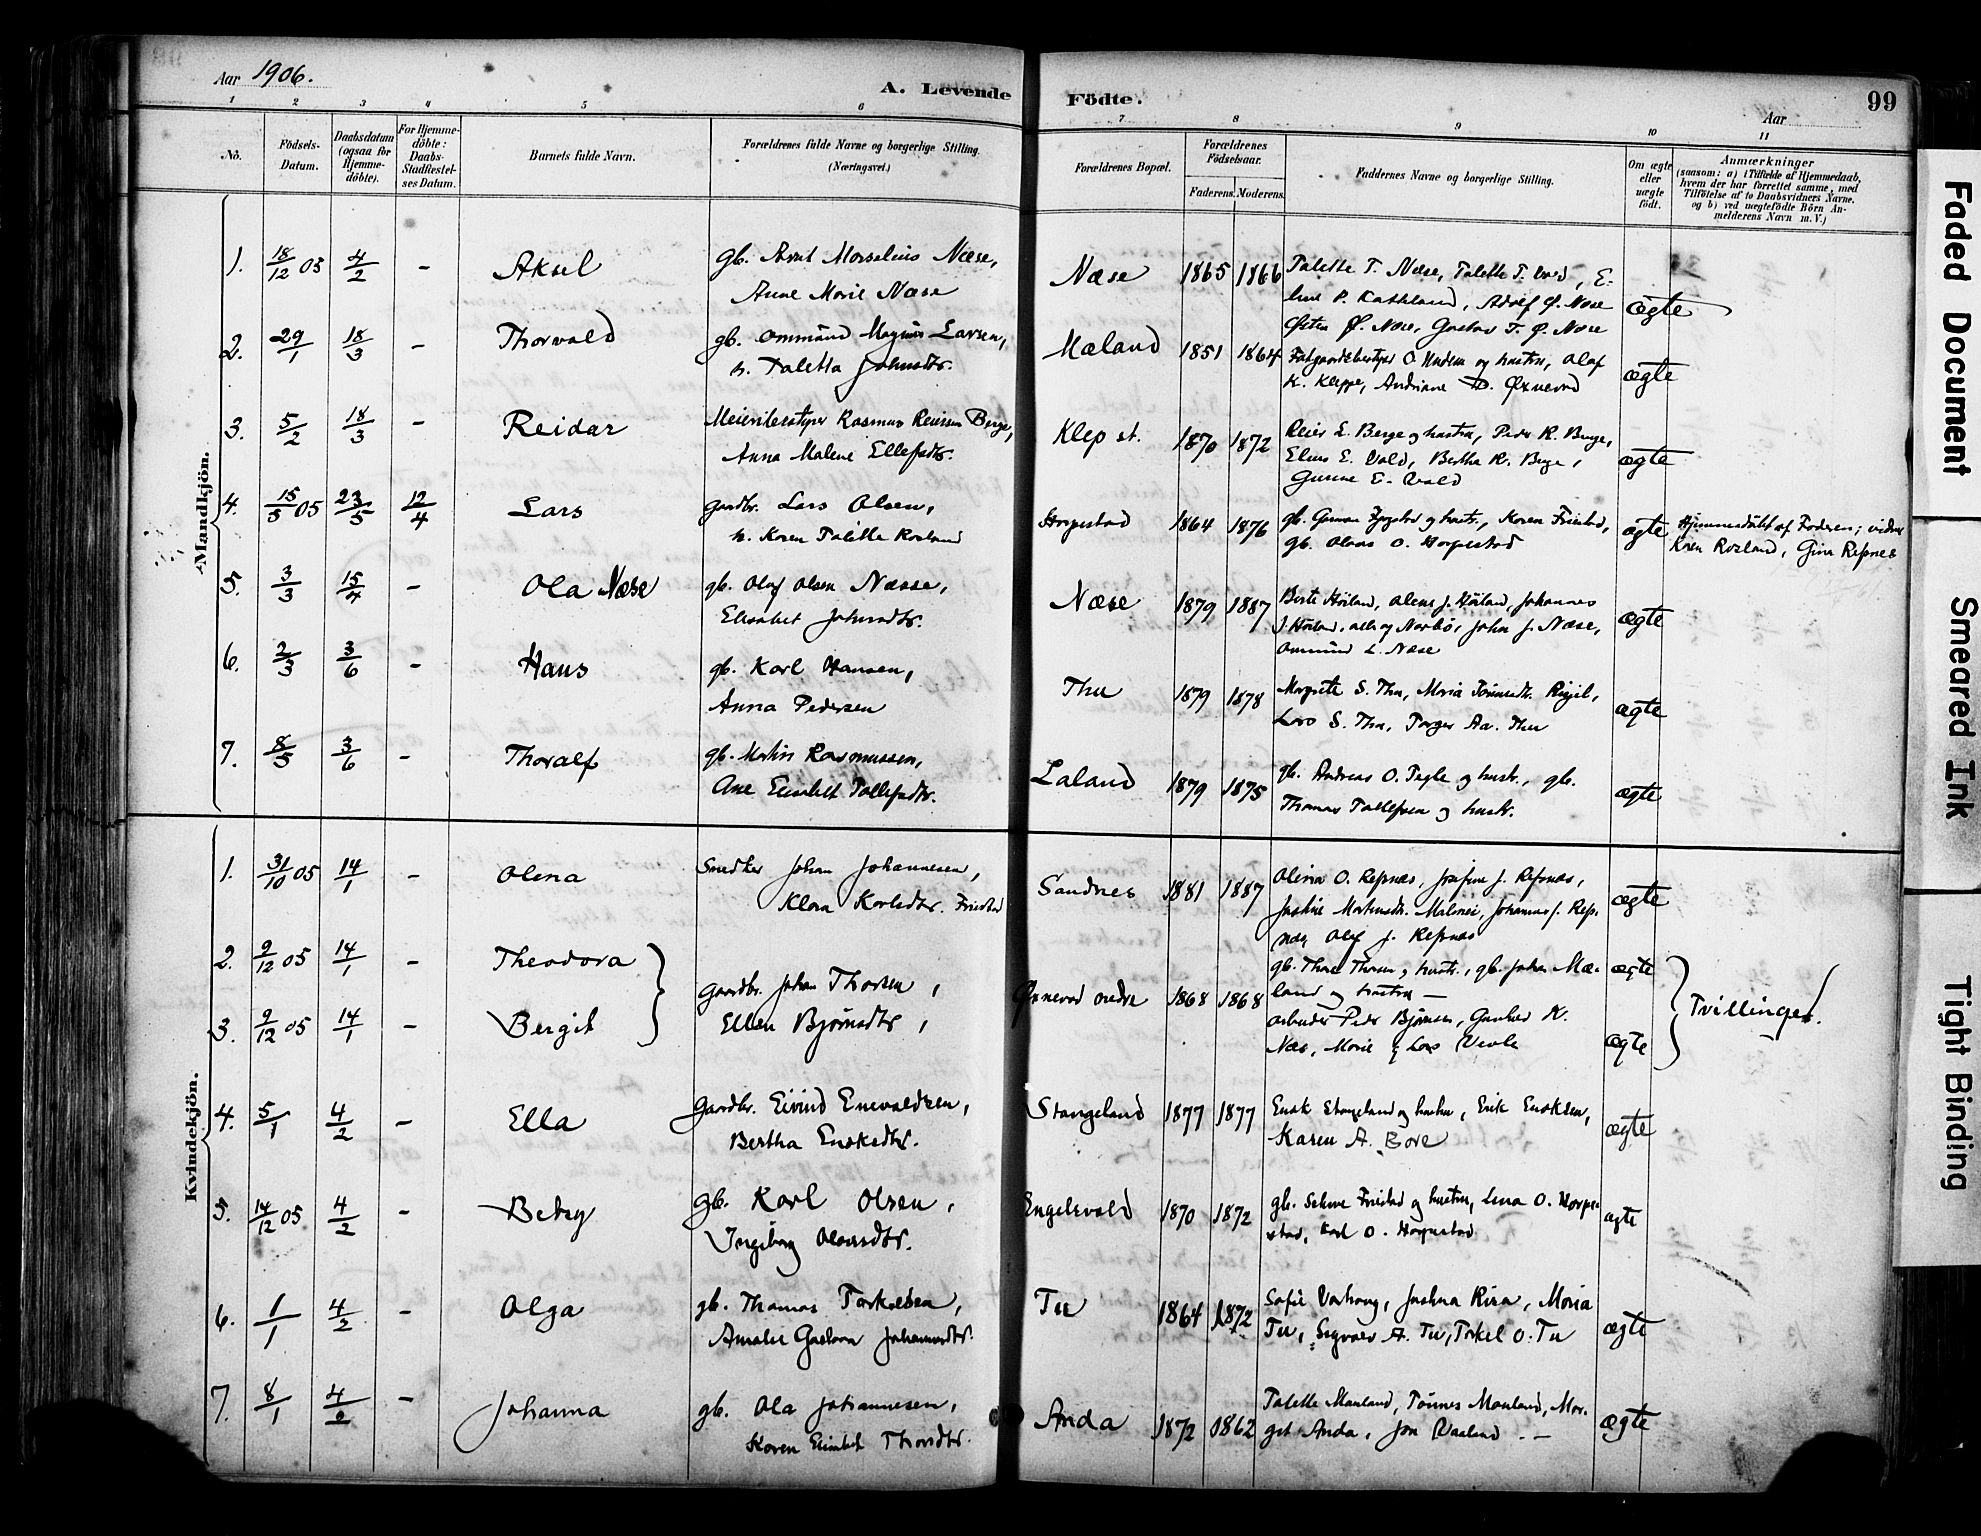 Aar 1906.
A. Levende Födte.
99
Aar
1 2 3 4 5 6 7 8 9 10 11
No.
Födsels-Datum.
Daabsdatum (ogsaa for Hjemme-döbte).
For Hjemme-döbte: Daabs-Stadfæstel-ses Datum.
Barnets fulde Navn.
Forældrenes fulde Navne og borgerlige Stilling.
(Næringsvei.)
Forældrenes Bopæl.
Forældrenes Födselsaar.
Faderens. Moderens.
Faddernes Navne og borgerlige Stilling.
Om ægte eller uægte födt.
Anmærkninger
(saasom: a) i Tilfælde af Hjemmedaab,
hvem der har forrettet samme, med
Tilföielse af to Daabsvidners Navne.
og b) ved uægtefödte Börn An-
melderens Navn m. V.)
Mandkjön.
1. 18/12 05 4/2 - Aksel
gb. Arnt Marselius Næse,
Anne Marie Næse
Næse 1865 1866
Talette T. Næse, Talette T.
Adolf Ø. Næse
Østen Ø. Næse, Gustav T. Ø. Næse
ægte
2. 29/1 18/3 - Thorvald
gb. Ommund Magnus Larsen,
h. Taletta Johnsdtr.
Mæland 1851 1864
og hustru, Olaf
K. Kleppe, Andriane Øxnevad
ægte
3. 5/2 18/3 - Reidar
Meieribestyrer Rasmus Reiersen Berge,
Anna Malene Ellefsdtr.
Klep st. 1870 1872
Reier L. Berge og hustru, Peder R. Berge,
Elias E. Vold, Bertha R. Berge,
Gurine E. Vold
ægte
4. 15/3 05 23/5 12/4 Lars
gaardbr. Lars Olsen,
h. Karen Talette Rosland
Horpestad 1864 1876
gb. Gunnar og hustr., Karen Friestad,
gb. Olaus O. Horpestad
ægte
Hjemmedøbt af Faderen; vidner
Karen Rosland, Gina Refsnes
5. 3/3 15/4 - Ola Næse
gb. Olaf Olsen Næsse,
Elisabet Johnsdtr.
Næse 1879 1887
Berte Høiland, Johannes
J. Høiland, John J. Næse,
Ommund L. Næse
ægte
6. 2/3 3/6 - Hans
gb. Karl Hansen,
Anna Pedersen
Thu 1879 1878
Margrete S. Thu, Maria
Lars S. Thu, Torger Aa. Thu
ægte
7. 8/5 3/6 - Thoralf
gb. Martin Rasmussen,
Ane Elisabet Tollefsdtr.
Laland 1879 1875
gb. Andreas O. Tegle og hustr., gb.
Thomas Tollefsen og hustr.
ægte
Kvindekjön.
1. 31/10 05 14/1 - Olena
Snedker Johan Johannesen,
Klara Karlsdtr. Friestad
Sandnes 1881 1887
Olena O. Refsnæs, Josefine J. Refsnæs,
Johannes J. Refs-
næs, Olaf J. Refsnæs
ægte
2. 9/12 05 14/1 - Theodora
3. 9/12 05 14/1 - Bergit
Gaardbr. Johan Thorsen,
Ellen Bjørnsdtr,
Øxnevad nedre 1868 1868
gb. Thore Thorsen og hustr., gb. Johan Mæ-
land og hustru —
Arbeider Peder Bjørnsen, Gunhild K.
Næs, Marie og Lars
ægte
ægte
Tvillinger.
4. 5/1 4/2 - Ella
Gaardbr. Eivind Enevaldsen,
Bertha Enoksdtr.
Stangeland 1877 1877
Enok Stangeland og hustru, Erik Enoksen,
Karen A. Bore
ægte
5. 14/12 05 4/2 - Betsy
gb. Karl Olsen,
Ingeborg Olausdtr.
Engelsvold 1870 1872
gb. Friestad og hustru, Lena O. Horpe-
stad, Karl O. Horpestad
ægte
6. 1/1 4/2 - Olga
gb. Thomas Torkelsen,
Amalie Gustava Johannesdtr.
Tu 1864 1872
Sofie Varhaug, Maria
Tu, Sigvald A. Tu, Torkel O. Tu
ægte
7. 8/1 4/2 - Johanna
gb. Ola Johannesen,
Karen Elisabet Thorsdtr.
Anda 1872 1862
Talette Mauland, Tønnes Mauland, Mar-
git Anda, Jon —
ægte
Faded Document
Smeared Ink
Tight Binding